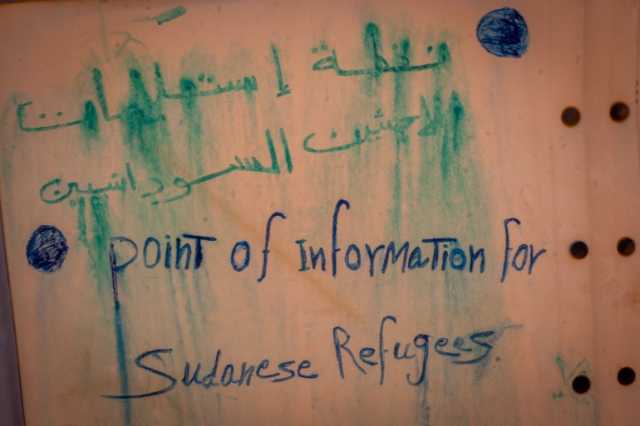 نقطة إستعلامات
الاجئين السودانيين
Point of Information for
Sudanese Refugees.